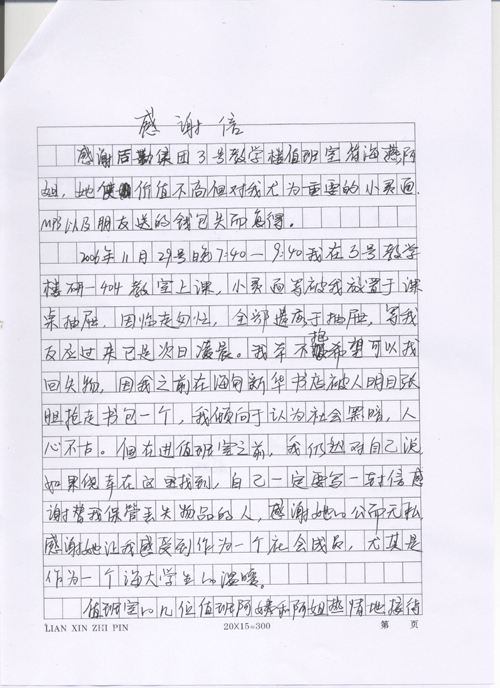 感谢信
感谢后勤集团3号教学楼值班室符海燕阿
姐,她使价值不高但对我尤为重要的小灵通、
MP3以及朋友送的钱包失而复得。
2006年11月29号晚7:40—9:40我在3号教学
楼研-404教室上课,小灵通等被我放置于课
桌抽屉,因临走匆忙,全部遗落于抽屉,等我
反应过来已是次日凌晨。我本不抱希望可以找
回失物,因我之前在海甸新华书店被人明目张
胆抢走书包一个,我倾向于认为社会黑暗,人
心不古。但在进值班室之前,我仍然对自己说
如果侥幸在这里找到,自己一定要写一封信感
谢替我保管丢失物品的人,感谢她的公而无私
感谢她让我感受到作为一个社会成员,尤其是
作为一个海大学生的温暖。
值班室的几位值班阿姨和阿姐热情地接待
LIAN XIN ZHI PIN 20X15=300 第 页